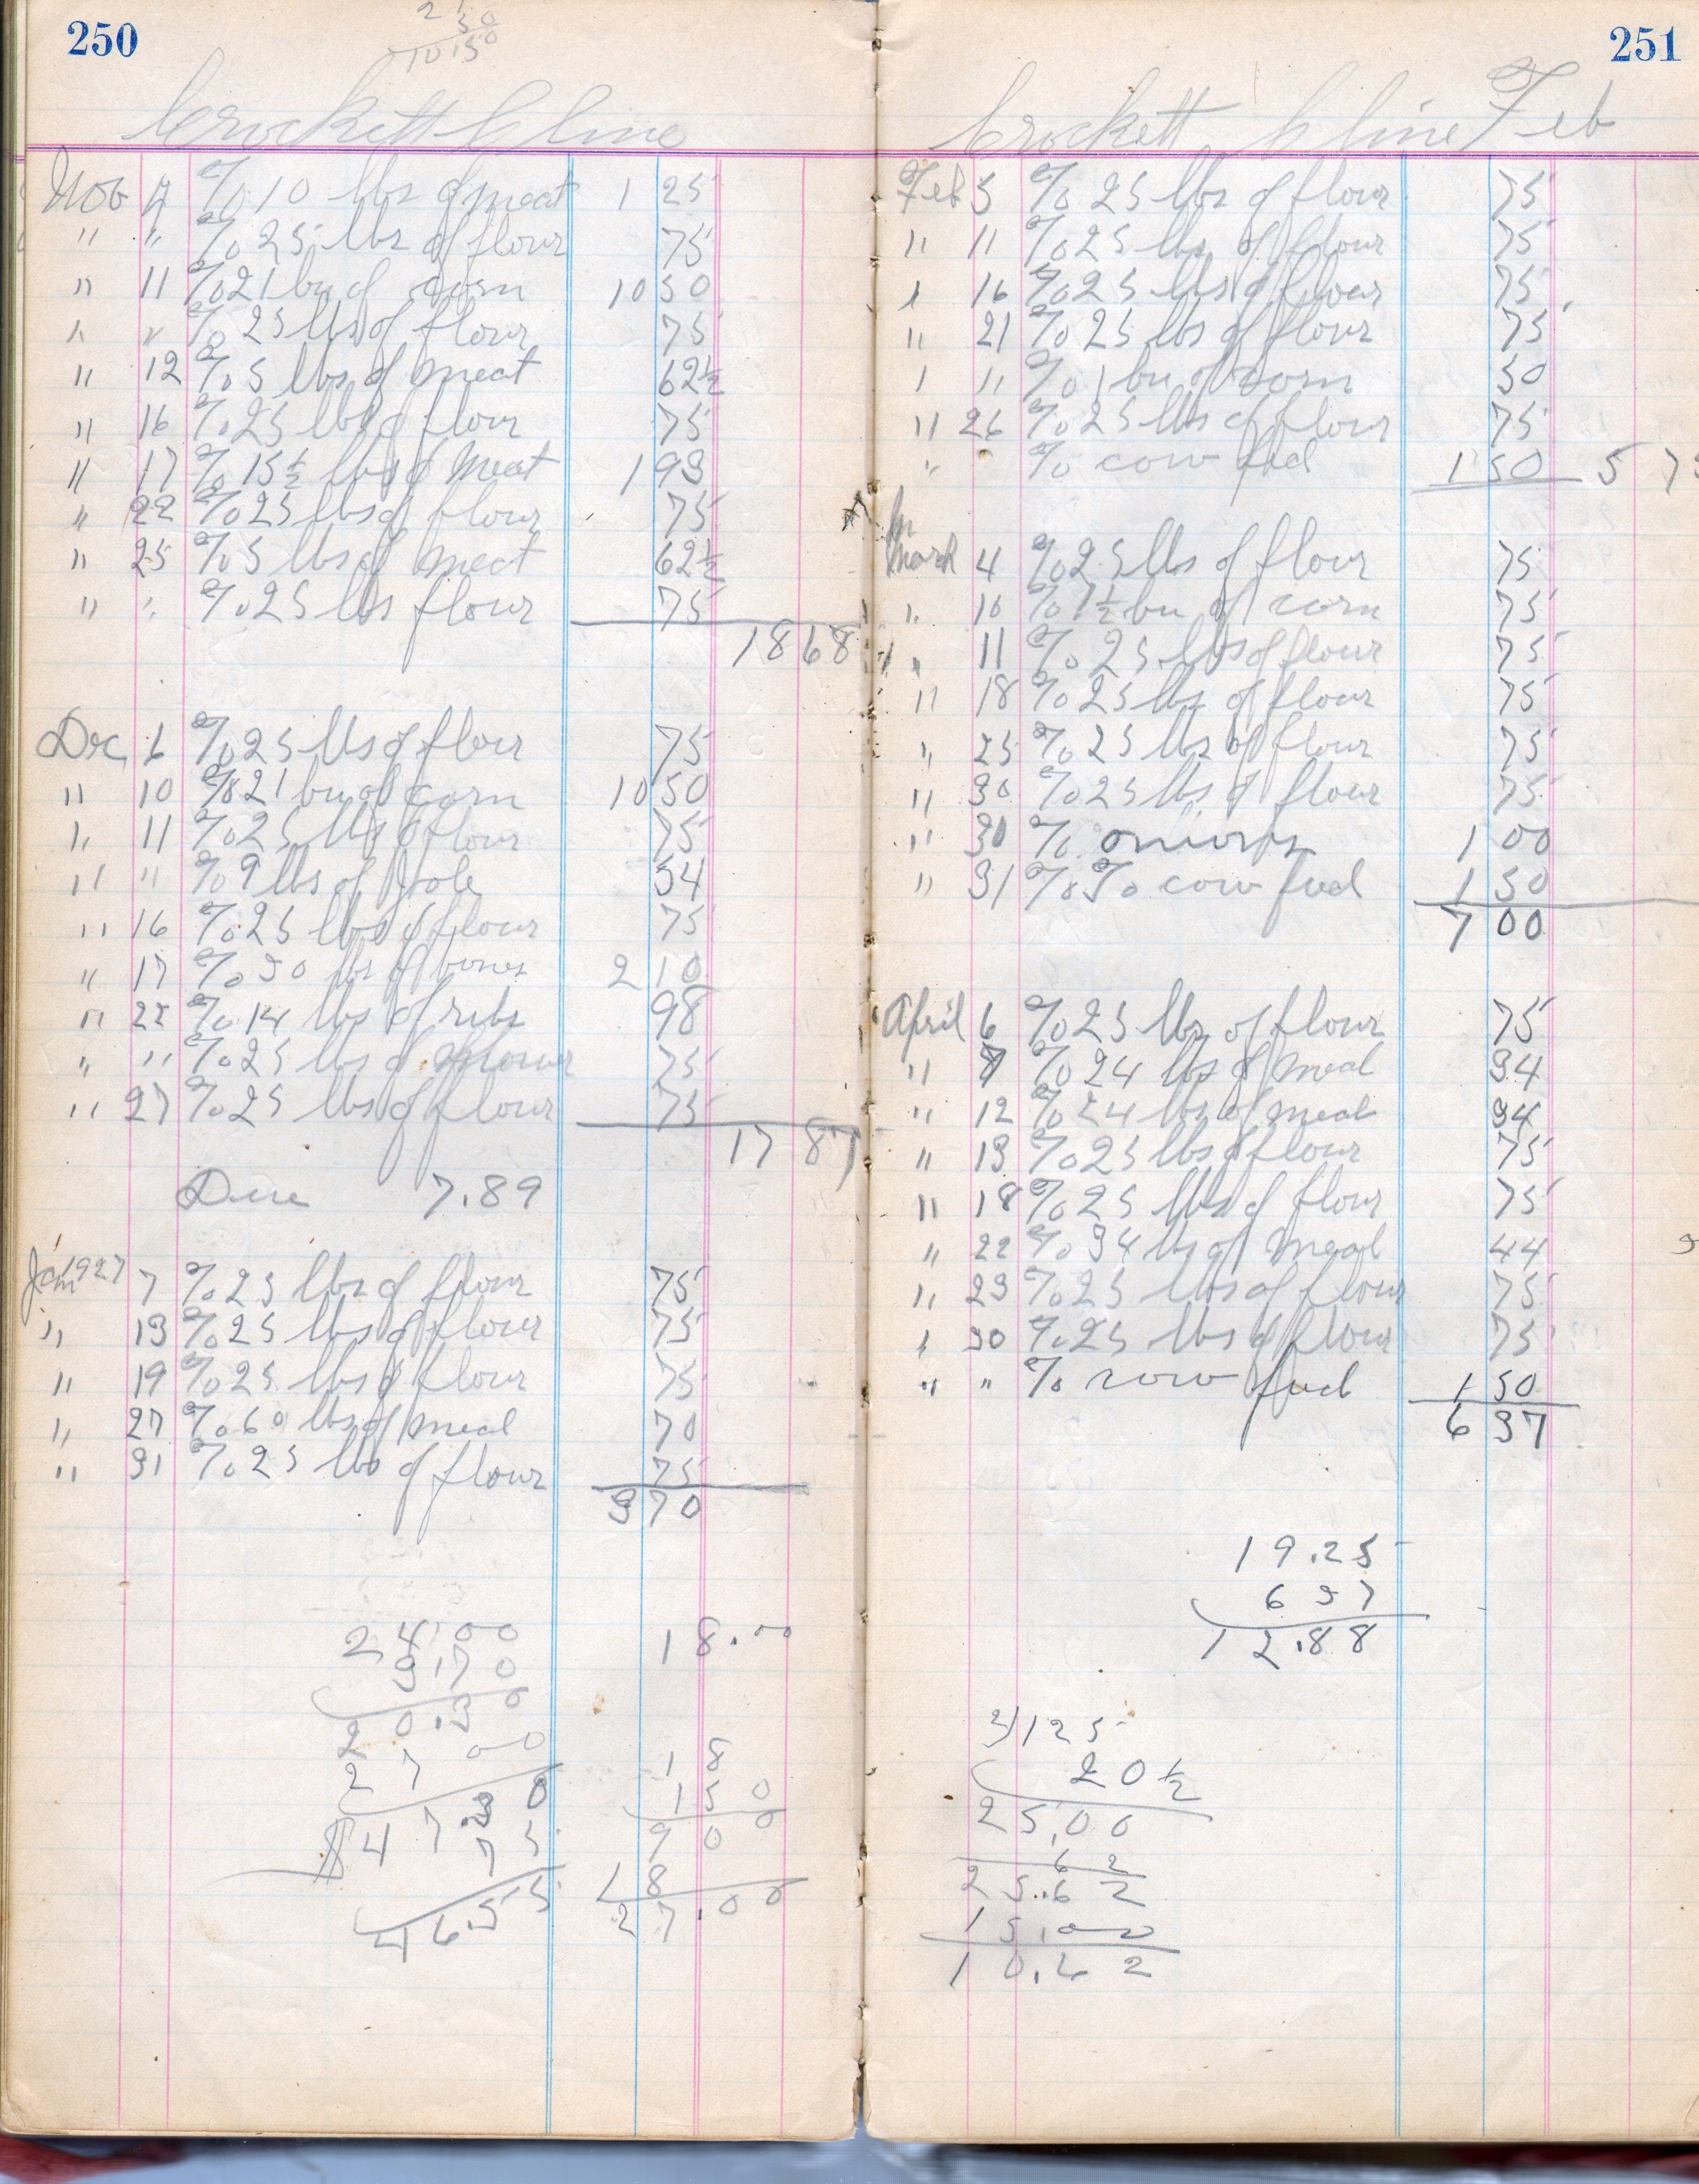 250
2 30
10 50
Crockett Cline
Nov 9 % 10 lbs of meat 1 25
" " % 25 lbs of flour 75
" 11 % 21 bu of corn 10 50
" " % 25 lbs of flour 75
" 12 % 5 lbs of meat 62½
" 16 % 25 lbs of flour 75
" 17 % 15½ lbs of meat 1 93
" 22 % 25 lbs of flour 75
" 25 % 5 lbs of meat 62½
" " % 25 lbs flour 75
18 68
Dec 6 % 25 lbs of flour 75
" 10 % 21 bu of corn 10 50
" 11 % 25 lbs of flour 75
" " % 9 lbs of Jole 54
" 16 % 25 lbs of flour 75
" 17 % 30 lbs of bones 2 10
" 22 % 14 lbs of ribs 98
" " % 25 lbs of flour 75
" 27 % 25 lbs of flour 75
17 87
Due 7.89
Jan 1927 7 % 25 lbs of flour 75
" 13 % 25 lbs of flour 75
" 19 % 25 lbs of flour 75
" 27 % 60 lbs of meal 70
" 31 % 25 lbs of flour 75
3 70
24.00
3.70
20.30
27 00
$47.30
75
46.55
18.00
18
1 50
9 00
18
27.00
251
Crockett Cline Feb
Feb 5 % 25 lbs of flour 75
" 11 % 25 lbs of flour 75
" 16 % 25 lbs of flour 75
" 21 % 25 lbs of flour 75
" " % 1 bu of corn 50
" 26 % 25 lbs of flour 75
" " % cow feed 1 50 5 75
March 4 % 25 lbs of flour 75
" 10 % 1½ bu of corn 75
" 11 % 25 lbs of flour 75
" 18 % 25 lbs of flour 75
" 25 % 25 lbs of flour 75
" 30 % 25 lbs of flour 75
" 30 % onions 1 00
" 31 % % cow feed 1 50
7 00
April 6 % 25 lbs of flour 75
" 7 % 24 lbs of meal 34
" 12 % 24 lbs of meal 34
" 13 % 25 lbs of flour 75
" 18 % 25 lbs of flour 75
" 22 % 34 lbs of meal 44
" 23 % 25 lbs of flour 75
" 30 % 25 lbs of flour 75
" " % cow feed 1 50
6 37
19.25
6 37
12.88
2)125
20½
25,00
62
25.62
15.00
10.62